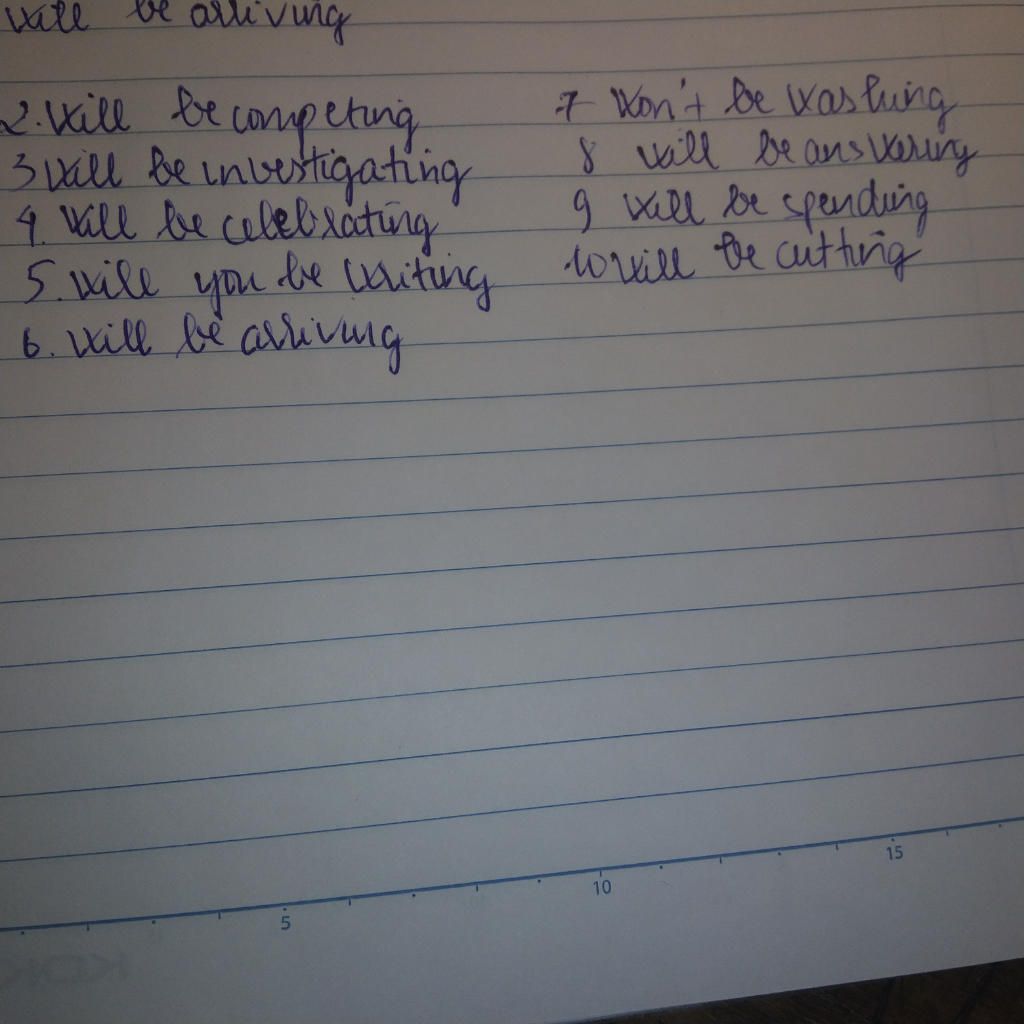 will be arriving
2. will be competing
3 will be investigating
4. will be celebrating
5. will you be writing
6. will be arriving
7 won't be washing
8 will be answering
9 will be spending
10 will be cutting
5 10 15